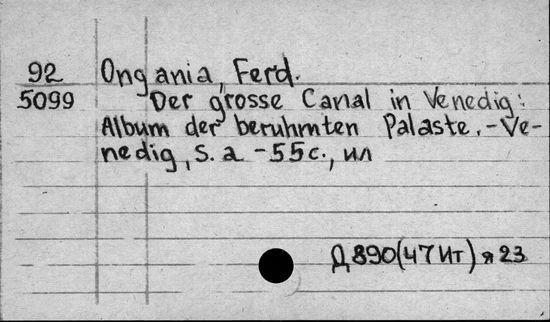 92 Ongania, Ferd.
5099 Der grosse Canal in Venedig:
Album der beruhmten Palaste. - Ve-
nedig, S. a - 55 c., ил
Д 890(47Ит) я 23